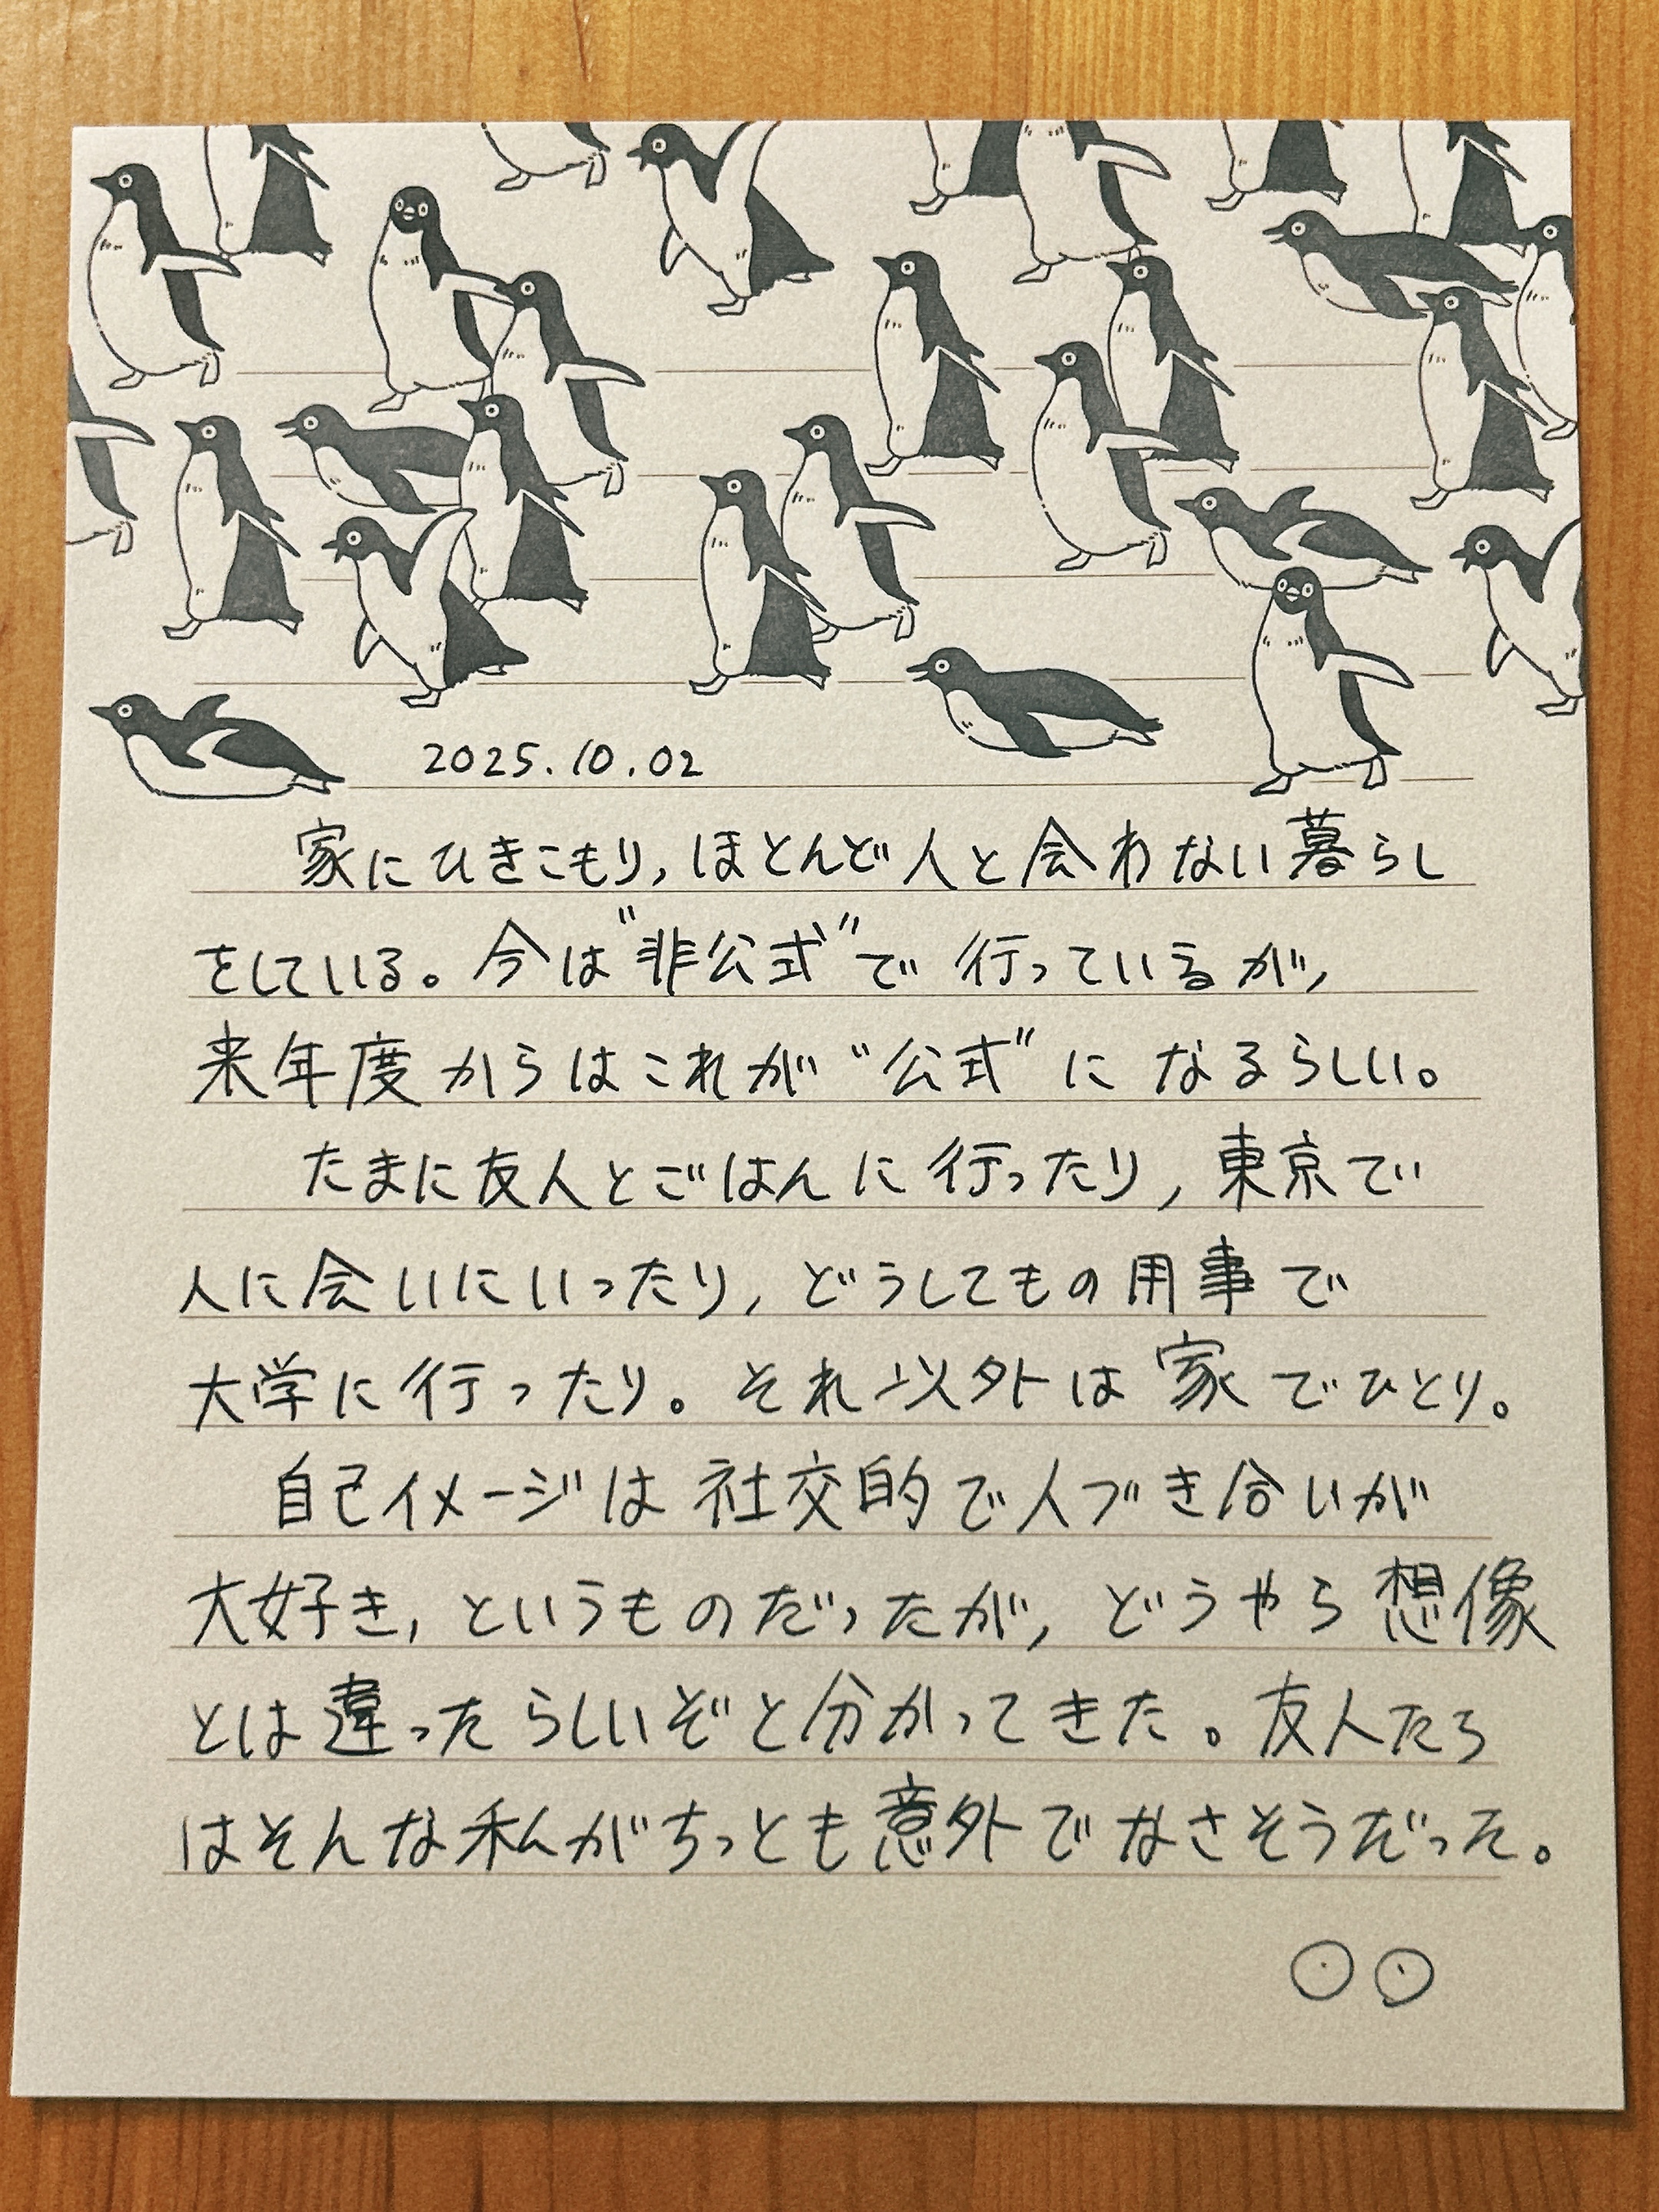 2025.10.02
家にひきこもり,ほとんど人と会わない暮らし
をしている。今は"非公式"で行っているが,
来年度からはこれが"公式"になるらしい。
たまに友人とごはんに行ったり,東京で
人に会いにいったり,どうしてもの用事で
大学に行ったり。それ以外は家でひとり。
自己イメージは社交的で人づき合いが
大好き,というものだったが,どうやら想像
とは違ったらしいぞと分かってきた。友人たち
はそんな私がちっとも意外でなさそうだった。